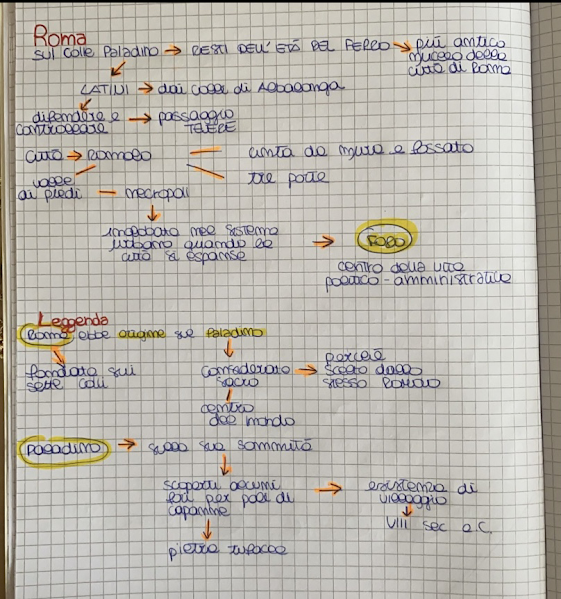 Roma
sul colle Paladino → RESTI DELL'ETÀ DEL FERRO → più antico
nucleo della
città di Roma
LATINI → dai colli di Albalonga
difendere e → passaggio
controllare TEVERE
città → Romolo — cinta da mura e fossato
tre porte
valle
ai piedi — necropoli
inglobata nel sistema
urbano quando la → FORO
città si espanse
centro della vita
politico-amministrativa
Leggenda
Roma ebbe origine sul Paladino
fondata sui
sette colli
considerato → perché
sacro scelto dallo
stesso Romolo
centro
del mondo
Paladino → sulla sua sommità
scoperti alcuni → esistenza di
fori per pali di villaggio
capanne
VIII sec a.C.
pietra tufacea